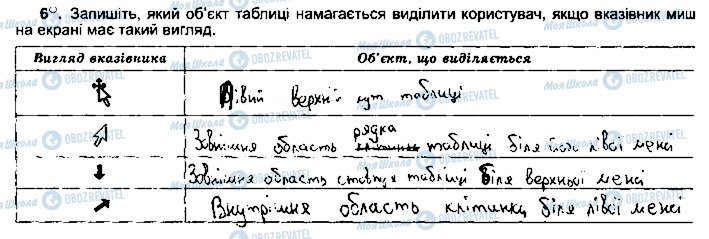 6°. Запишіть, який об'єкт таблиці намагається виділити користувач, якщо вказівник миш
на екрані має такий вигляд.
Вигляд вказівника Об'єкт, що виділяється
Лівий верхній кут таблиці
рядка
Зовнішня область таблиці біля його лівої межі
Зовнішня область стовпця таблиці біля верхньої межі
Внутрішня область клітинки біля лівої межі
Моя Школа OBOZREVATEL